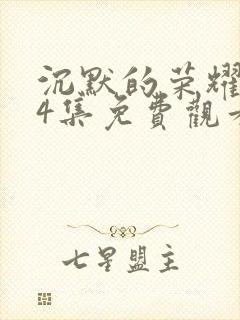 沉默的荣耀
4集免費觀看
七星盟主